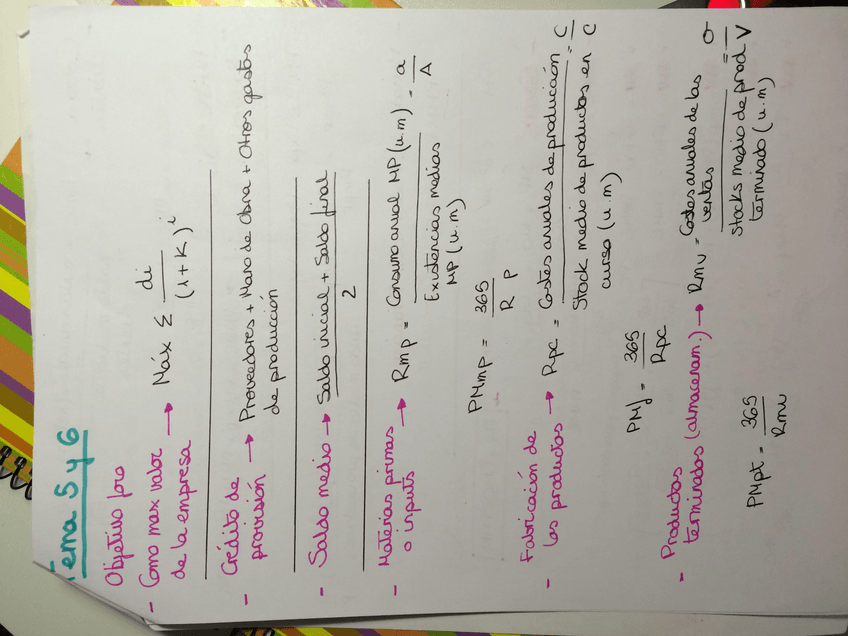 Tema 5 y 6
Objetivo pro
- Como max valor
de la empresa → Máx Σ di / (1+K)^i
- Crédito de
provisión → Proveedores + Mano de Obra + Otros gastos
de producción
- Saldo medio → Saldo inicial + Saldo final / 2
- Materias primas
o inputs → Rmp = Consumo anual MP (u.m) / Existencias medias MP (u.m) = a / A
PMmp = 365 / R P
- Fabricación de
los productos → Rpc = Costes anuales de producción / Stock medio de productos en curso (u.m) = C / C
PMf = 365 / Rpc
- Productos
terminados (almacenam.) → Rmv = Costes anuales de las ventas / Stocks medio de prod terminado (u.m) = / V
PMpt = 365 / Rmv